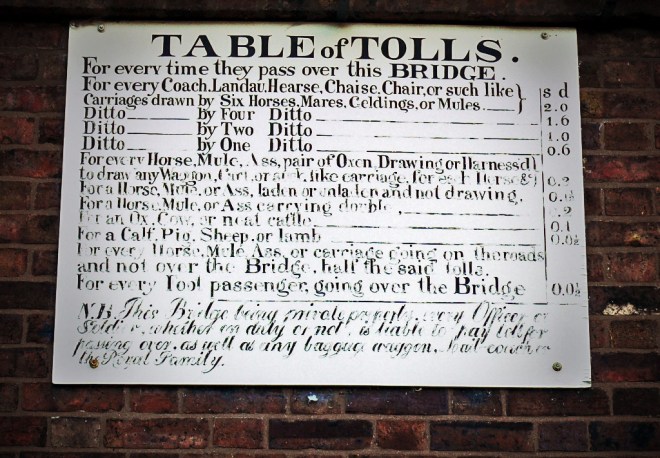 TABLE of TOLLS.
For every time they pass over this BRIDGE.
For every Coach, Landau, Hearse, Chaise, Chair, or such like } s d
Carriages drawn by Six Horses, Mares, Geldings, or Mules 2.0
Ditto by Four Ditto 1.6
Ditto by Two Ditto 1.0
Ditto by One Ditto 0.6
For every Horse, Mule, Ass, pair of Oxen, Drawing or Harness'd }
to draw any Waggon, Cart, or such like carriage, for each Horse &c 0.2
For a Horse, Mule, or Ass, laden or unladen and not drawing, 0.1½
For a Horse, Mule, or Ass carrying double, 0.2
For an Ox, Cow, or neat cattle 0.1
For a Calf, Pig, Sheep, or lamb 0.0½
For every Horse, Mule, Ass, or carriage going on the roads
and not over the Bridge, half the said tolls.
For every Foot passenger, going over the Bridge 0.0½
N.B. This Bridge being private property, every Officer or
Soldier, whether on duty or not, is liable to pay toll for
passing over, as well as any baggage waggon, Mail coach or
the Royal Family.